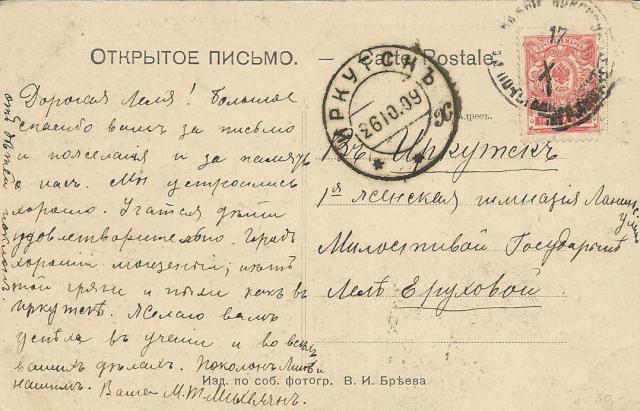 ОТКРЫТОЕ ПИСЬМО. — Carte Postale.
Дорогая Леля! Большое
спасибо вамъ за письмо
и пожелания и за память
о насъ. Мы устроились
хорошо. Учатся дѣти
удовлетворительно. Городъ
хороший мощеный, нѣтъ
той грязи и пыли какъ въ
Иркутскѣ. Желаю вамъ
успѣха въ учении и во всѣхъ
вашихъ дѣлахъ. Поклонъ
нашимъ. Ваша М.
отъ дѣтей поклонъ.
ИРКУТСКЪ
26 10 09
17
X
Адресъ.
Въ Иркутскъ
1ая Женская гимназия
Милостивой Государынѣ
Лелѣ Еруховой.
Изд. по соб. фотогр. В. И. Брѣева
30.-